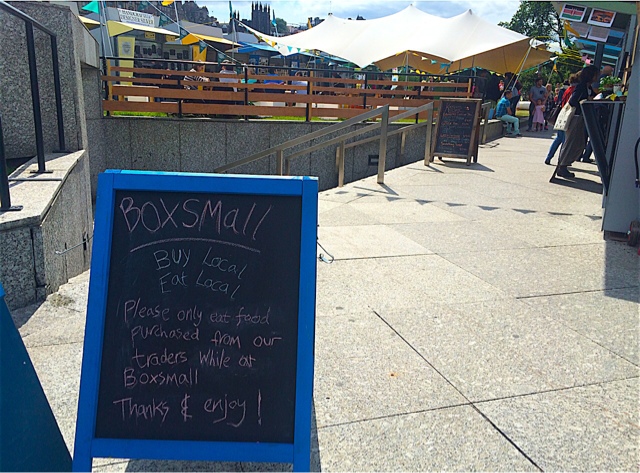 BOXSMall
Buy Local
Eat Local
Please only eat food
purchased from our
traders while at
Boxsmall
Thanks & enjoy!